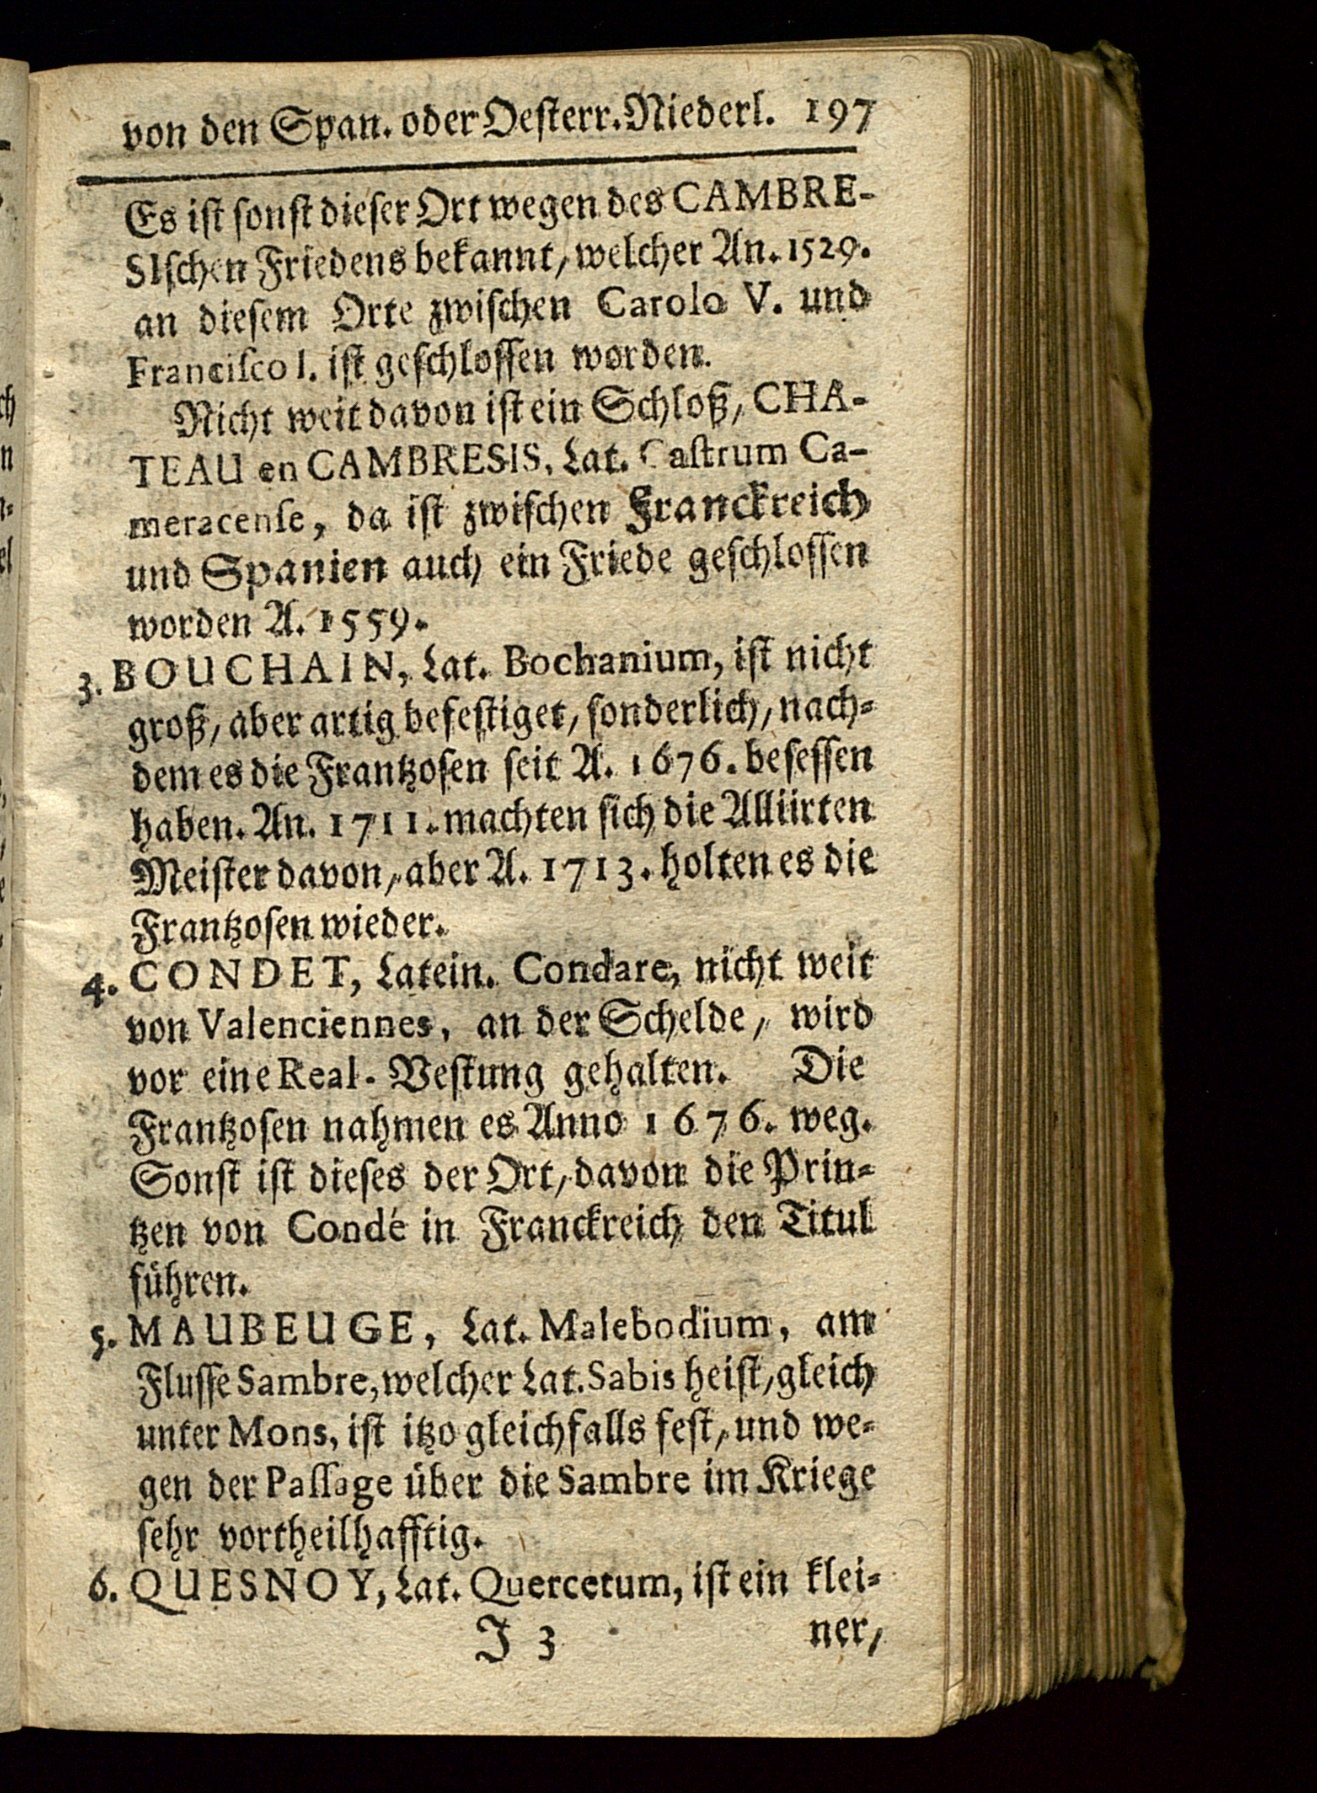 von den Span. oder Oesterr. Niederl. 197
Es ist sonst dieser Ort wegen des CAMBRE-
SIschen Friedens bekannt, welcher An. 1529.
an diesem Orte zwischen Carolo V. und
Francisco I. ist geschlossen worden.
Nicht weit davon ist ein Schloß, CHA-
TEAU en CAMBRESIS, Lat. Castrum Ca-
meracense, da ist zwischen Franckreich
und Spanien auch ein Friede geschlossen
worden A. 1559.
3. BOUCHAIN, Lat. Bochanium, ist nicht
groß, aber artig befestiget, sonderlich, nach-
dem es die Frantzosen seit A. 1676. besessen
haben. An. 1711. machten sich die Alliirten
Meister davon, aber A. 1713. holten es die
Frantzosen wieder.
4. CONDET, Latein. Condare, nicht weit
von Valenciennes, an der Schelde, wird
vor eine Real-Vestung gehalten. Die
Frantzosen nahmen es Anno 1676. weg.
Sonst ist dieses der Ort, davon die Prin-
tzen von Condé in Franckreich den Titul
führen.
5. MAUBEUGE, Lat. Malebodium, am
Flusse Sambre, welcher Lat. Sabis heist, gleich
unter Mons, ist itzo gleichfalls fest, und we-
gen der Passage über die Sambre im Kriege
sehr vortheilhafftig.
6. QUESNOY, Lat. Quercetum, ist ein klei-
J 3 ner,